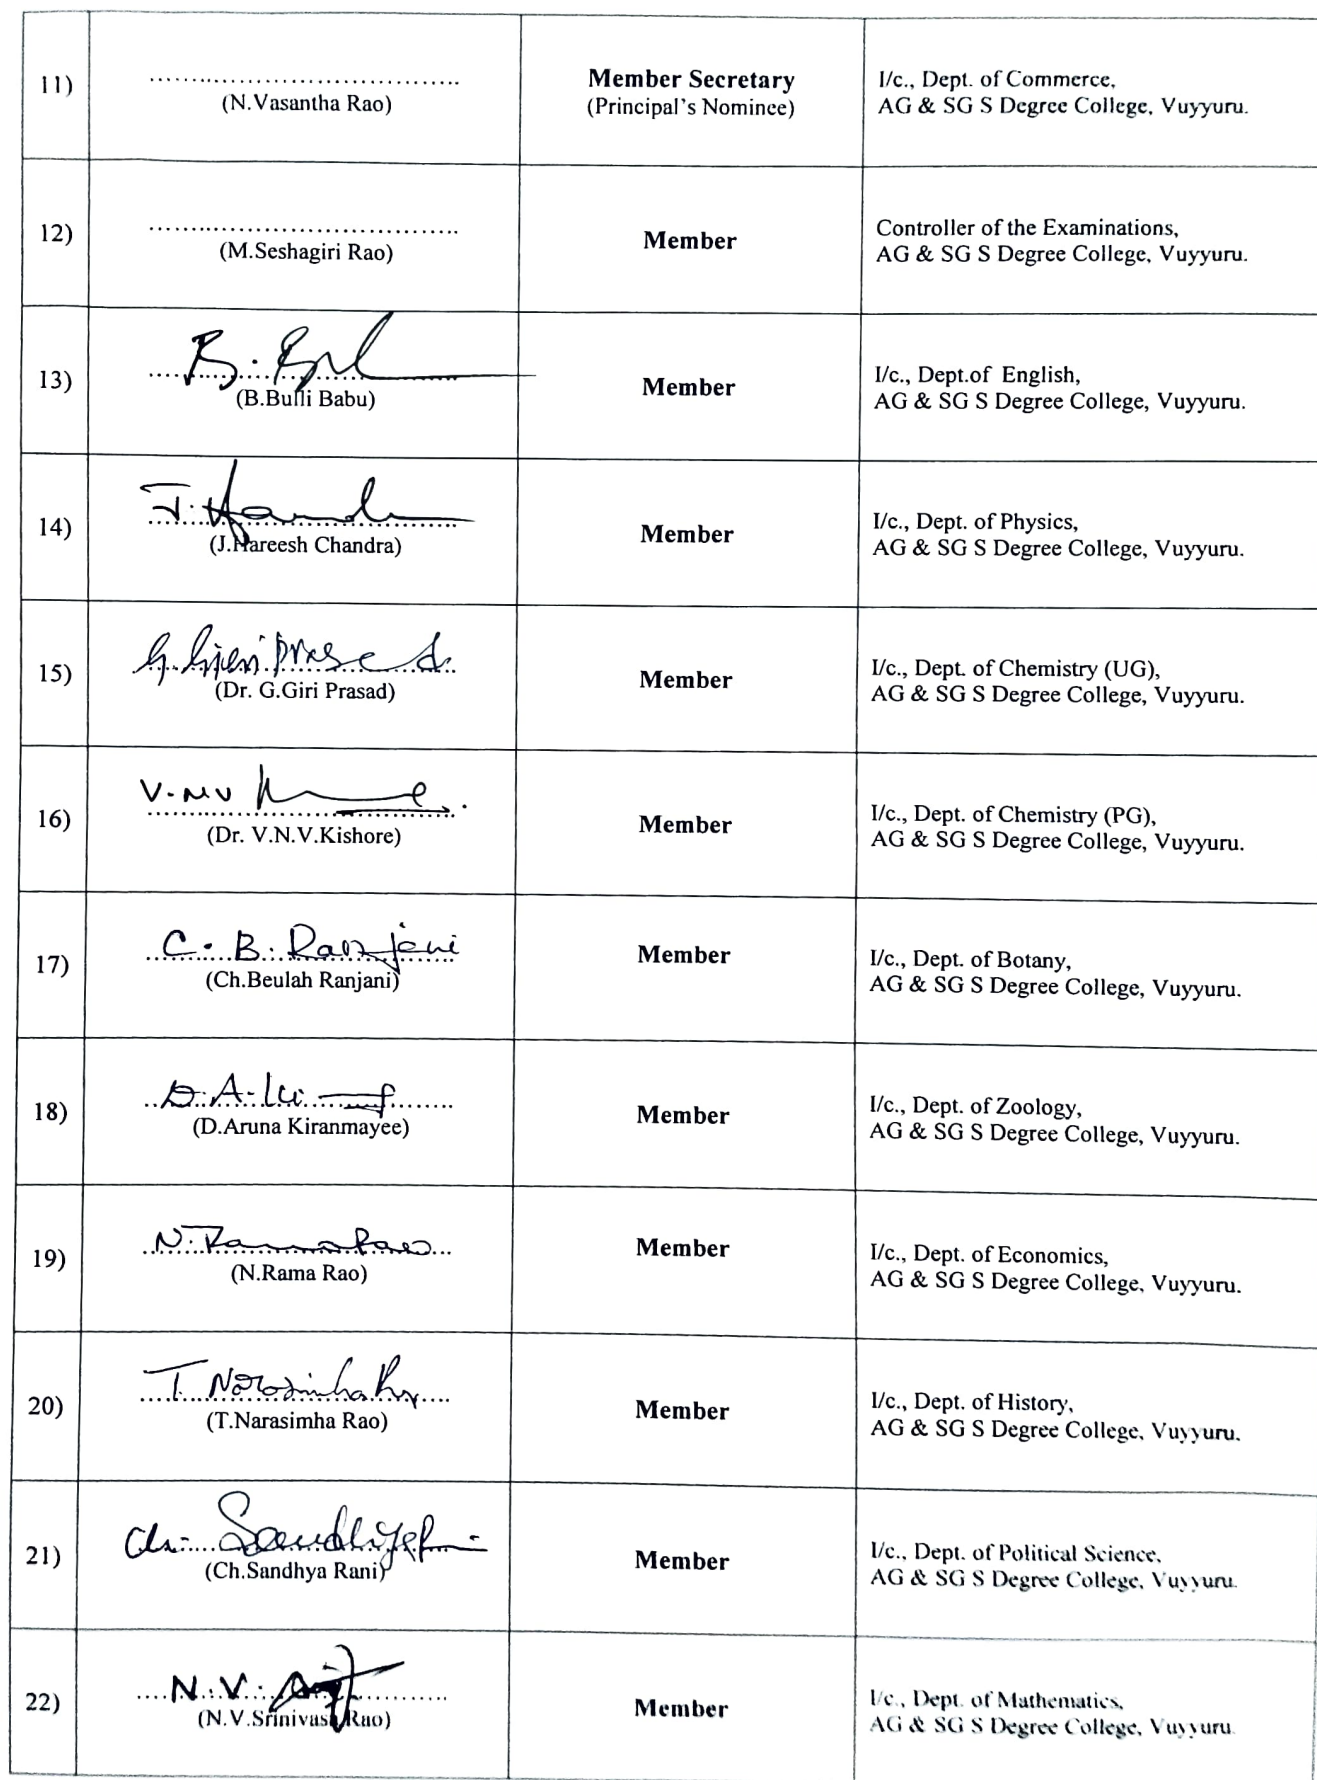 11)
....................................
(N.Vasantha Rao)
Member Secretary
(Principal's Nominee)
I/c., Dept. of Commerce,
AG & SG S Degree College, Vuyyuru.
12)
....................................
(M.Seshagiri Rao)
Member
Controller of the Examinations,
AG & SG S Degree College, Vuyyuru.
13)
B.
(B.Bulli Babu)
Member
I/c., Dept.of English,
AG & SG S Degree College, Vuyyuru.
14)
J.
(J.Hareesh Chandra)
Member
I/c., Dept. of Physics,
AG & SG S Degree College, Vuyyuru.
15)
G. Giri Prasad.
(Dr. G.Giri Prasad)
Member
I/c., Dept. of Chemistry (UG),
AG & SG S Degree College, Vuyyuru.
16)
V. NV
(Dr. V.N.V.Kishore)
Member
I/c., Dept. of Chemistry (PG),
AG & SG S Degree College, Vuyyuru.
17)
C. B. Ranjani
(Ch.Beulah Ranjani)
Member
I/c., Dept. of Botany,
AG & SG S Degree College, Vuyyuru.
18)
D. A.
(D.Aruna Kiranmayee)
Member
I/c., Dept. of Zoology,
AG & SG S Degree College, Vuyyuru.
19)
N. Rama Rao
(N.Rama Rao)
Member
I/c., Dept. of Economics,
AG & SG S Degree College, Vuyyuru.
20)
T. Narasimha
(T.Narasimha Rao)
Member
I/c., Dept. of History,
AG & SG S Degree College, Vuyyuru.
21)
Ch.
(Ch.Sandhya Rani)
Member
I/c., Dept. of Political Science,
AG & SG S Degree College, Vuyyuru.
22)
N. V.
(N.V.Srinivasa Rao)
Member
I/c., Dept. of Mathematics,
AG & SG S Degree College, Vuyyuru.